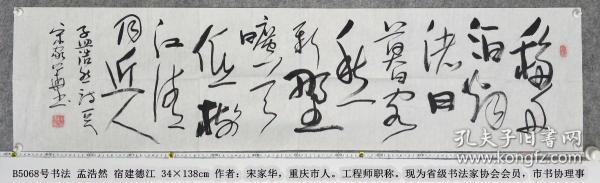 移舟
泊烟
渚日
暮客
愁
新野
曠天
低樹
江清
月近人
孟浩然詩
宋家華書
孔夫子旧书网
B5068号书法 孟浩然 宿建德江 34×138cm 作者：宋家华，重庆市人。工程师职称。现为省级书法家协会会员，市书协理事